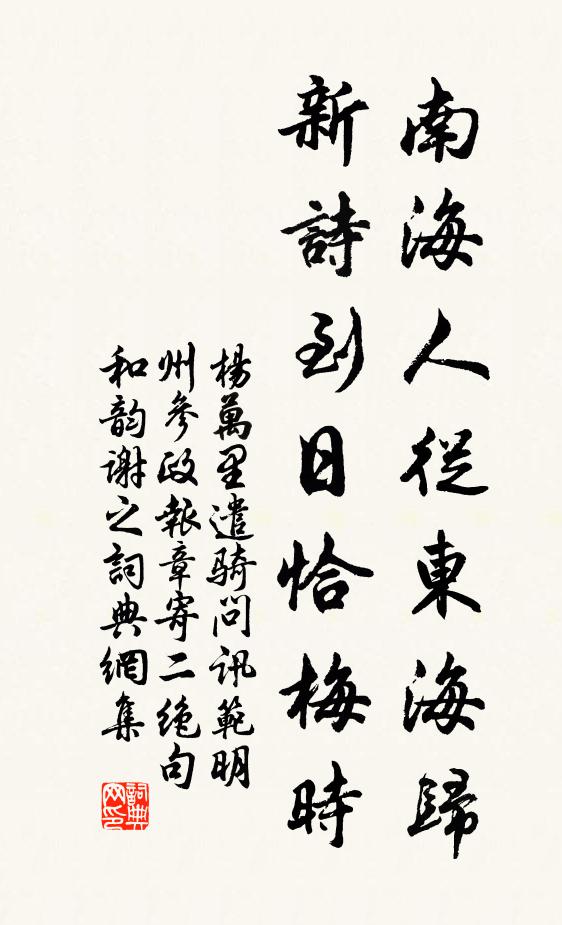 南海人從東海歸
新詩到日恰梅時
楊萬里遣騎問訊範明
州參政報章寄二絶句
和韵謝之詞典網集
詞典网印